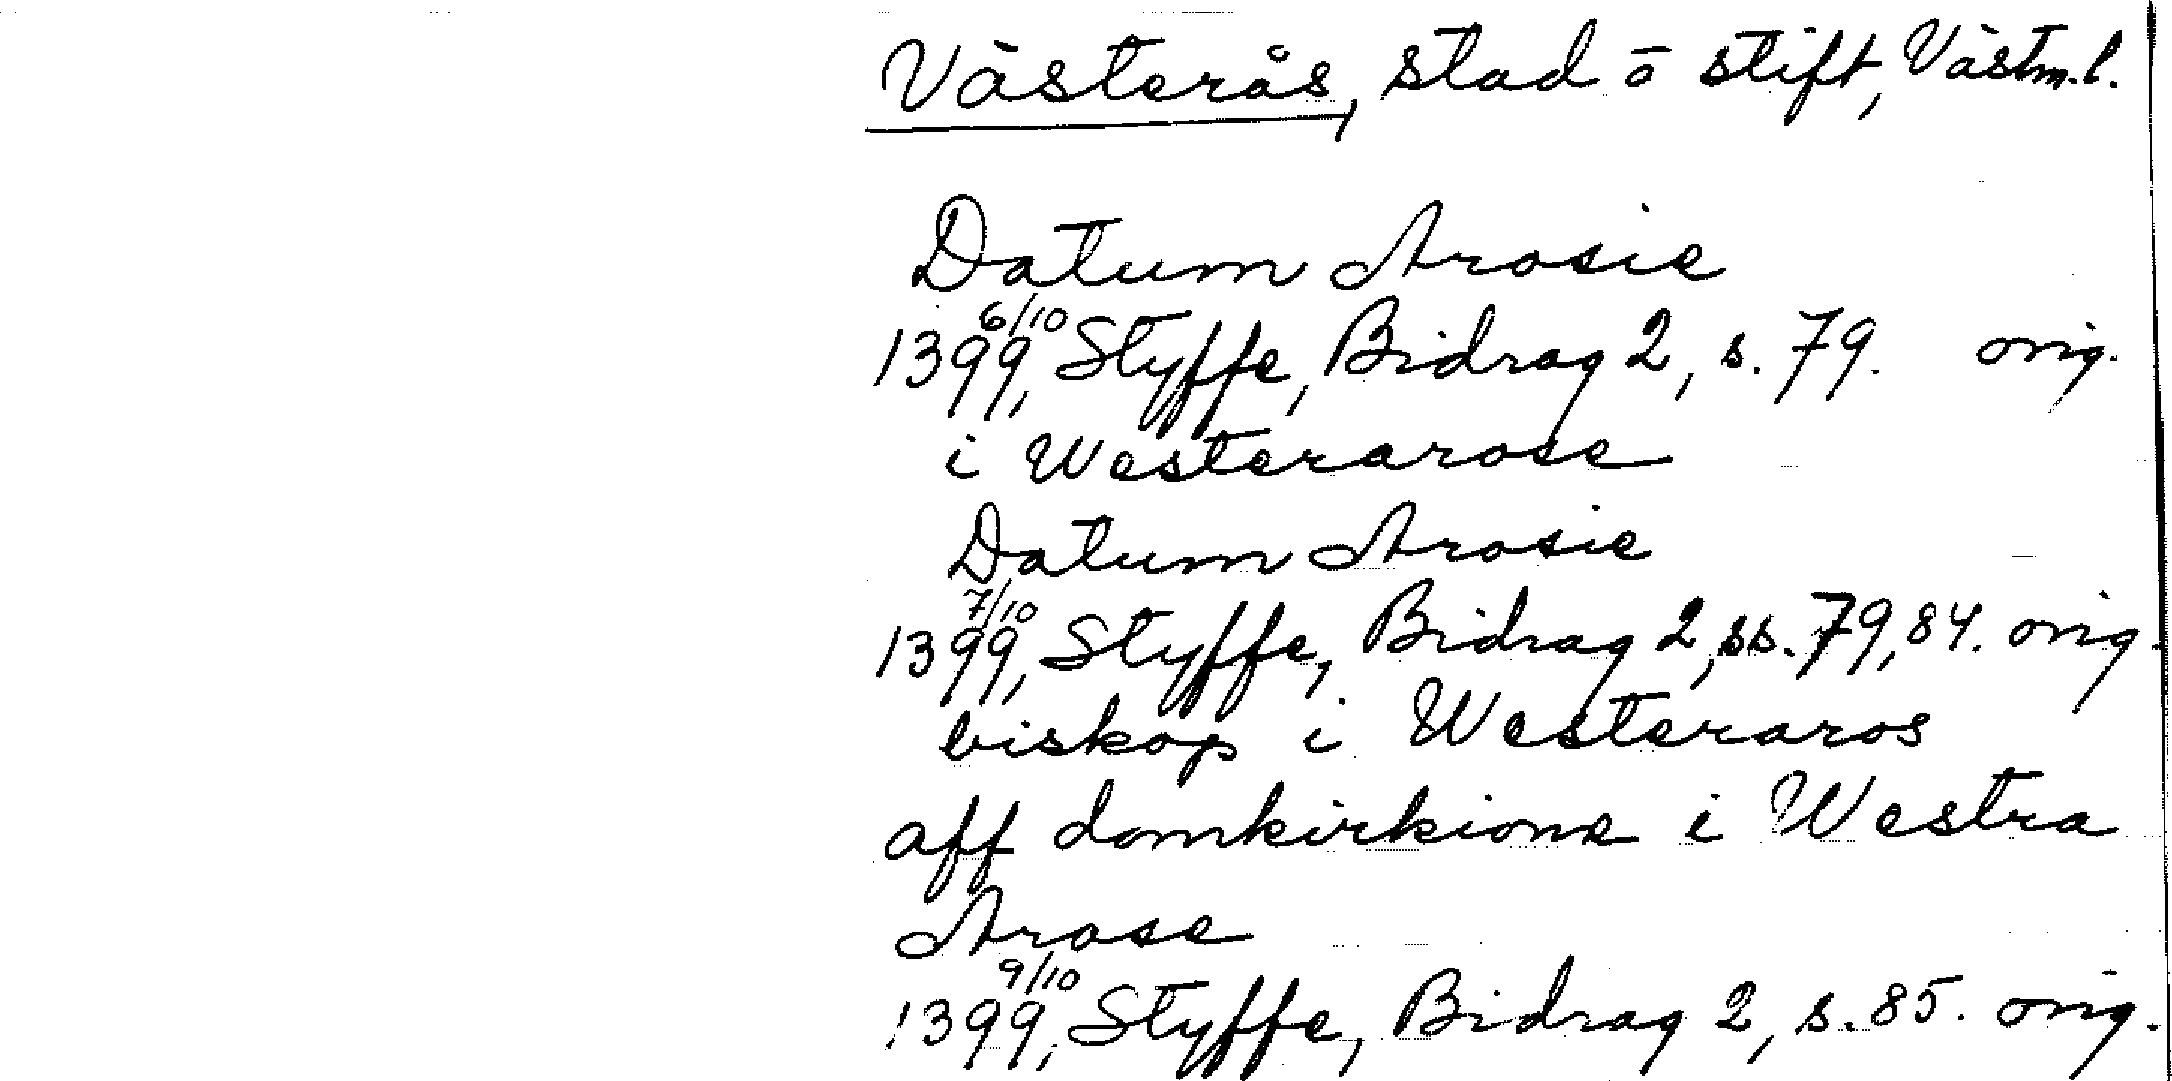 Västerås, stad o stift, Västm.l.
Datum Arosie
1399 6/10, Styffe, Bidrag 2, s. 79. orig.
i Westerarose
Datum Arosie
1399 7/10, Styffe, Bidrag 2, ss. 79, 84. orig.
biskop i Westeraros
aff domkirkione i Westra
Arose
1399 9/10, Styffe, Bidrag 2, s. 85. orig.